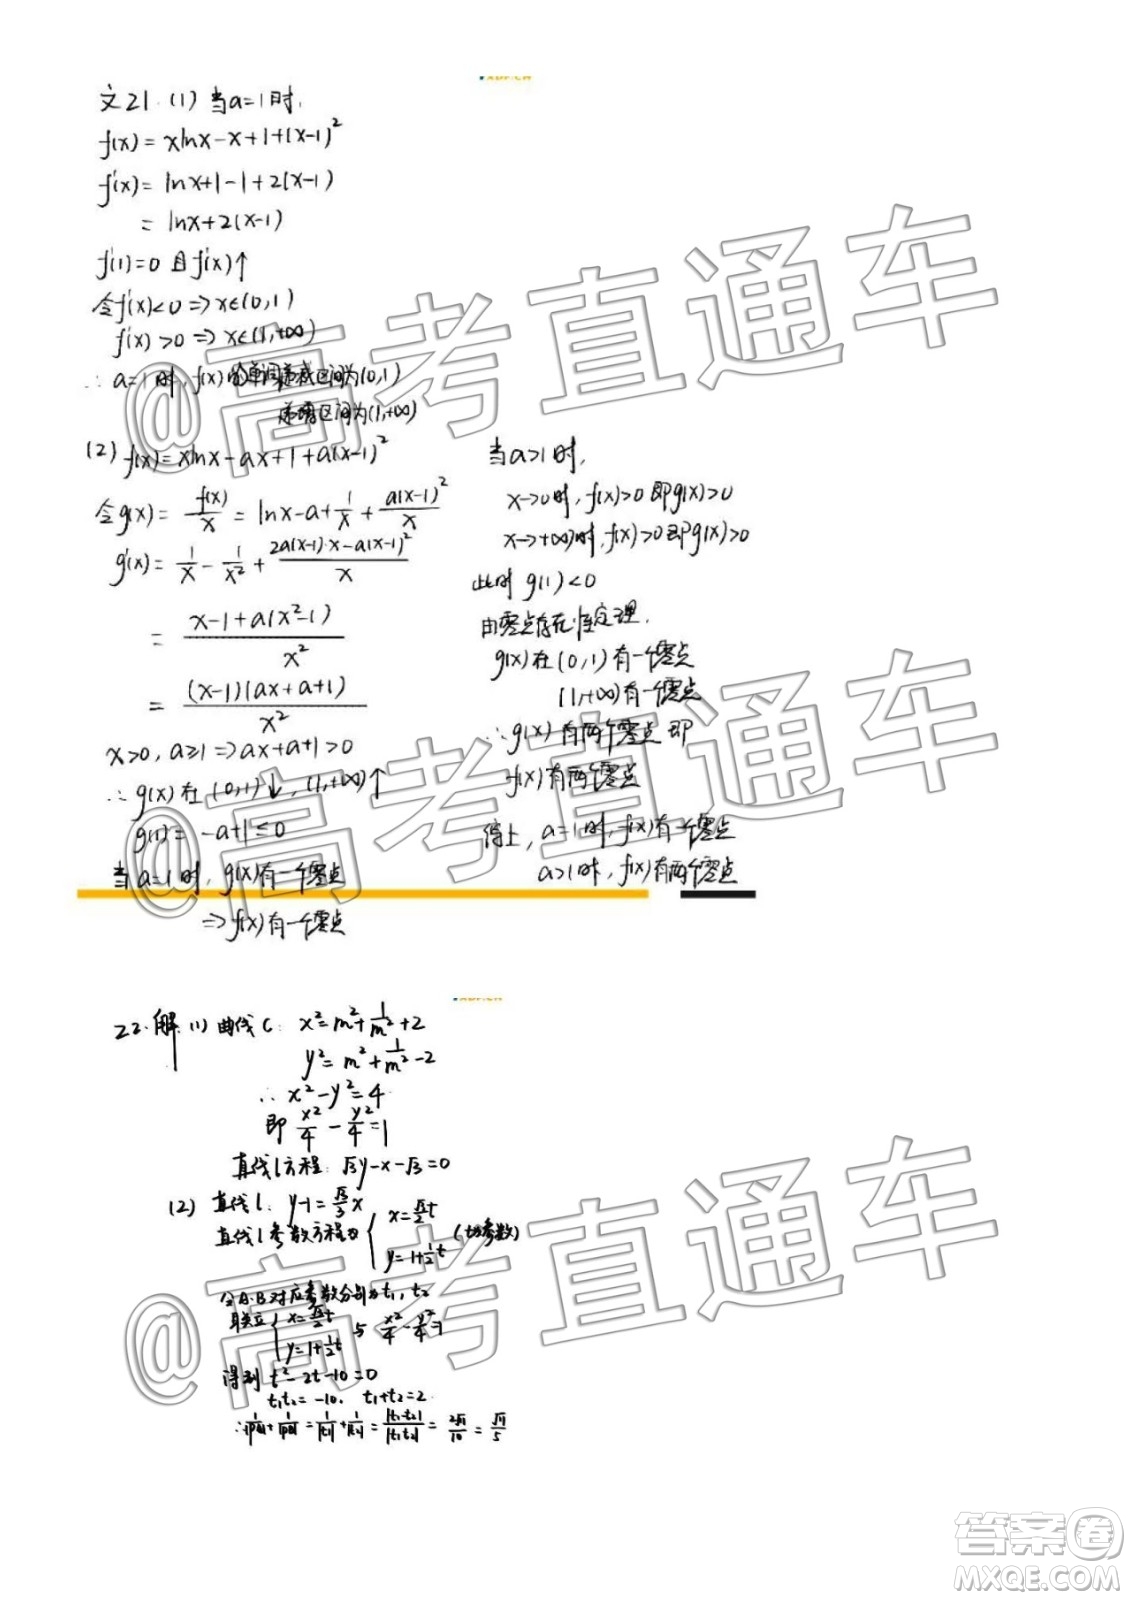 文21.(1)当a=1时,
f(x)=xlnx-x+1+(x-1)²
f'(x)=lnx+1-1+2(x-1)
=lnx+2(x-1)
f'(1)=0 且f'(x)↑
令f'(x)<0⇒x∈(0,1)
f'(x)>0⇒x∈(1,+∞)
∴a=1时,f(x)的单调递减区间为(0,1)
递增区间为(1,+∞)
(2) f(x)=xlnx-ax+1+a(x-1)²
令g(x)=f(x)/x=lnx-a+1/x+a(x-1)²/x
g'(x)=1/x-1/x²+2a(x-1)·x-a(x-1)²/x
=x-1+a(x²-1)/x²
=(x-1)(ax+a+1)/x²
x>0,a≥1⇒ax+a+1>0
∴g(x)在(0,1)↓,(1,+∞)↑
g(1)=-a+1≤0
当a=1时,g(x)有一个零点
⇒f(x)有一个零点
当a>1时,
x→0时,f(x)>0即g(x)>0
x→+∞时,f(x)>0即g(x)>0
此时g(1)<0
由零点存在性定理,
g(x)在(0,1)有一个零点
(1,+∞)有一个零点
∴g(x)有两个零点即
f(x)有两个零点
综上,a=1时,f(x)有一个零点
a>1时,f(x)有两个零点
22.解(1)曲线C:x²=m²+1/m²+2
y²=m²+1/m²-2
∴x²-y²=4
即x²/4-y²/4=1
直线l方程:√3y-x-√3=0
(2)直线l:y-1=√3/3x
直线l参数方程为{x=√3/2t
y=1+1/2t (t为参数)
令A.B对应参数分别为t₁,t₂
联立{x=√3/2t
y=1+1/2t 与x²/4-y²/4=1
得到t²-2t-10=0
t₁t₂=-10, t₁+t₂=2
∴1/|PA|+1/|PB|=1/|t₁|+1/|t₂|=|t₁-t₂|/|t₁t₂|=2√11/10=√11/5
@高考直通车
@高考直通车
@高考直通车
答案卷
MXQE.COM